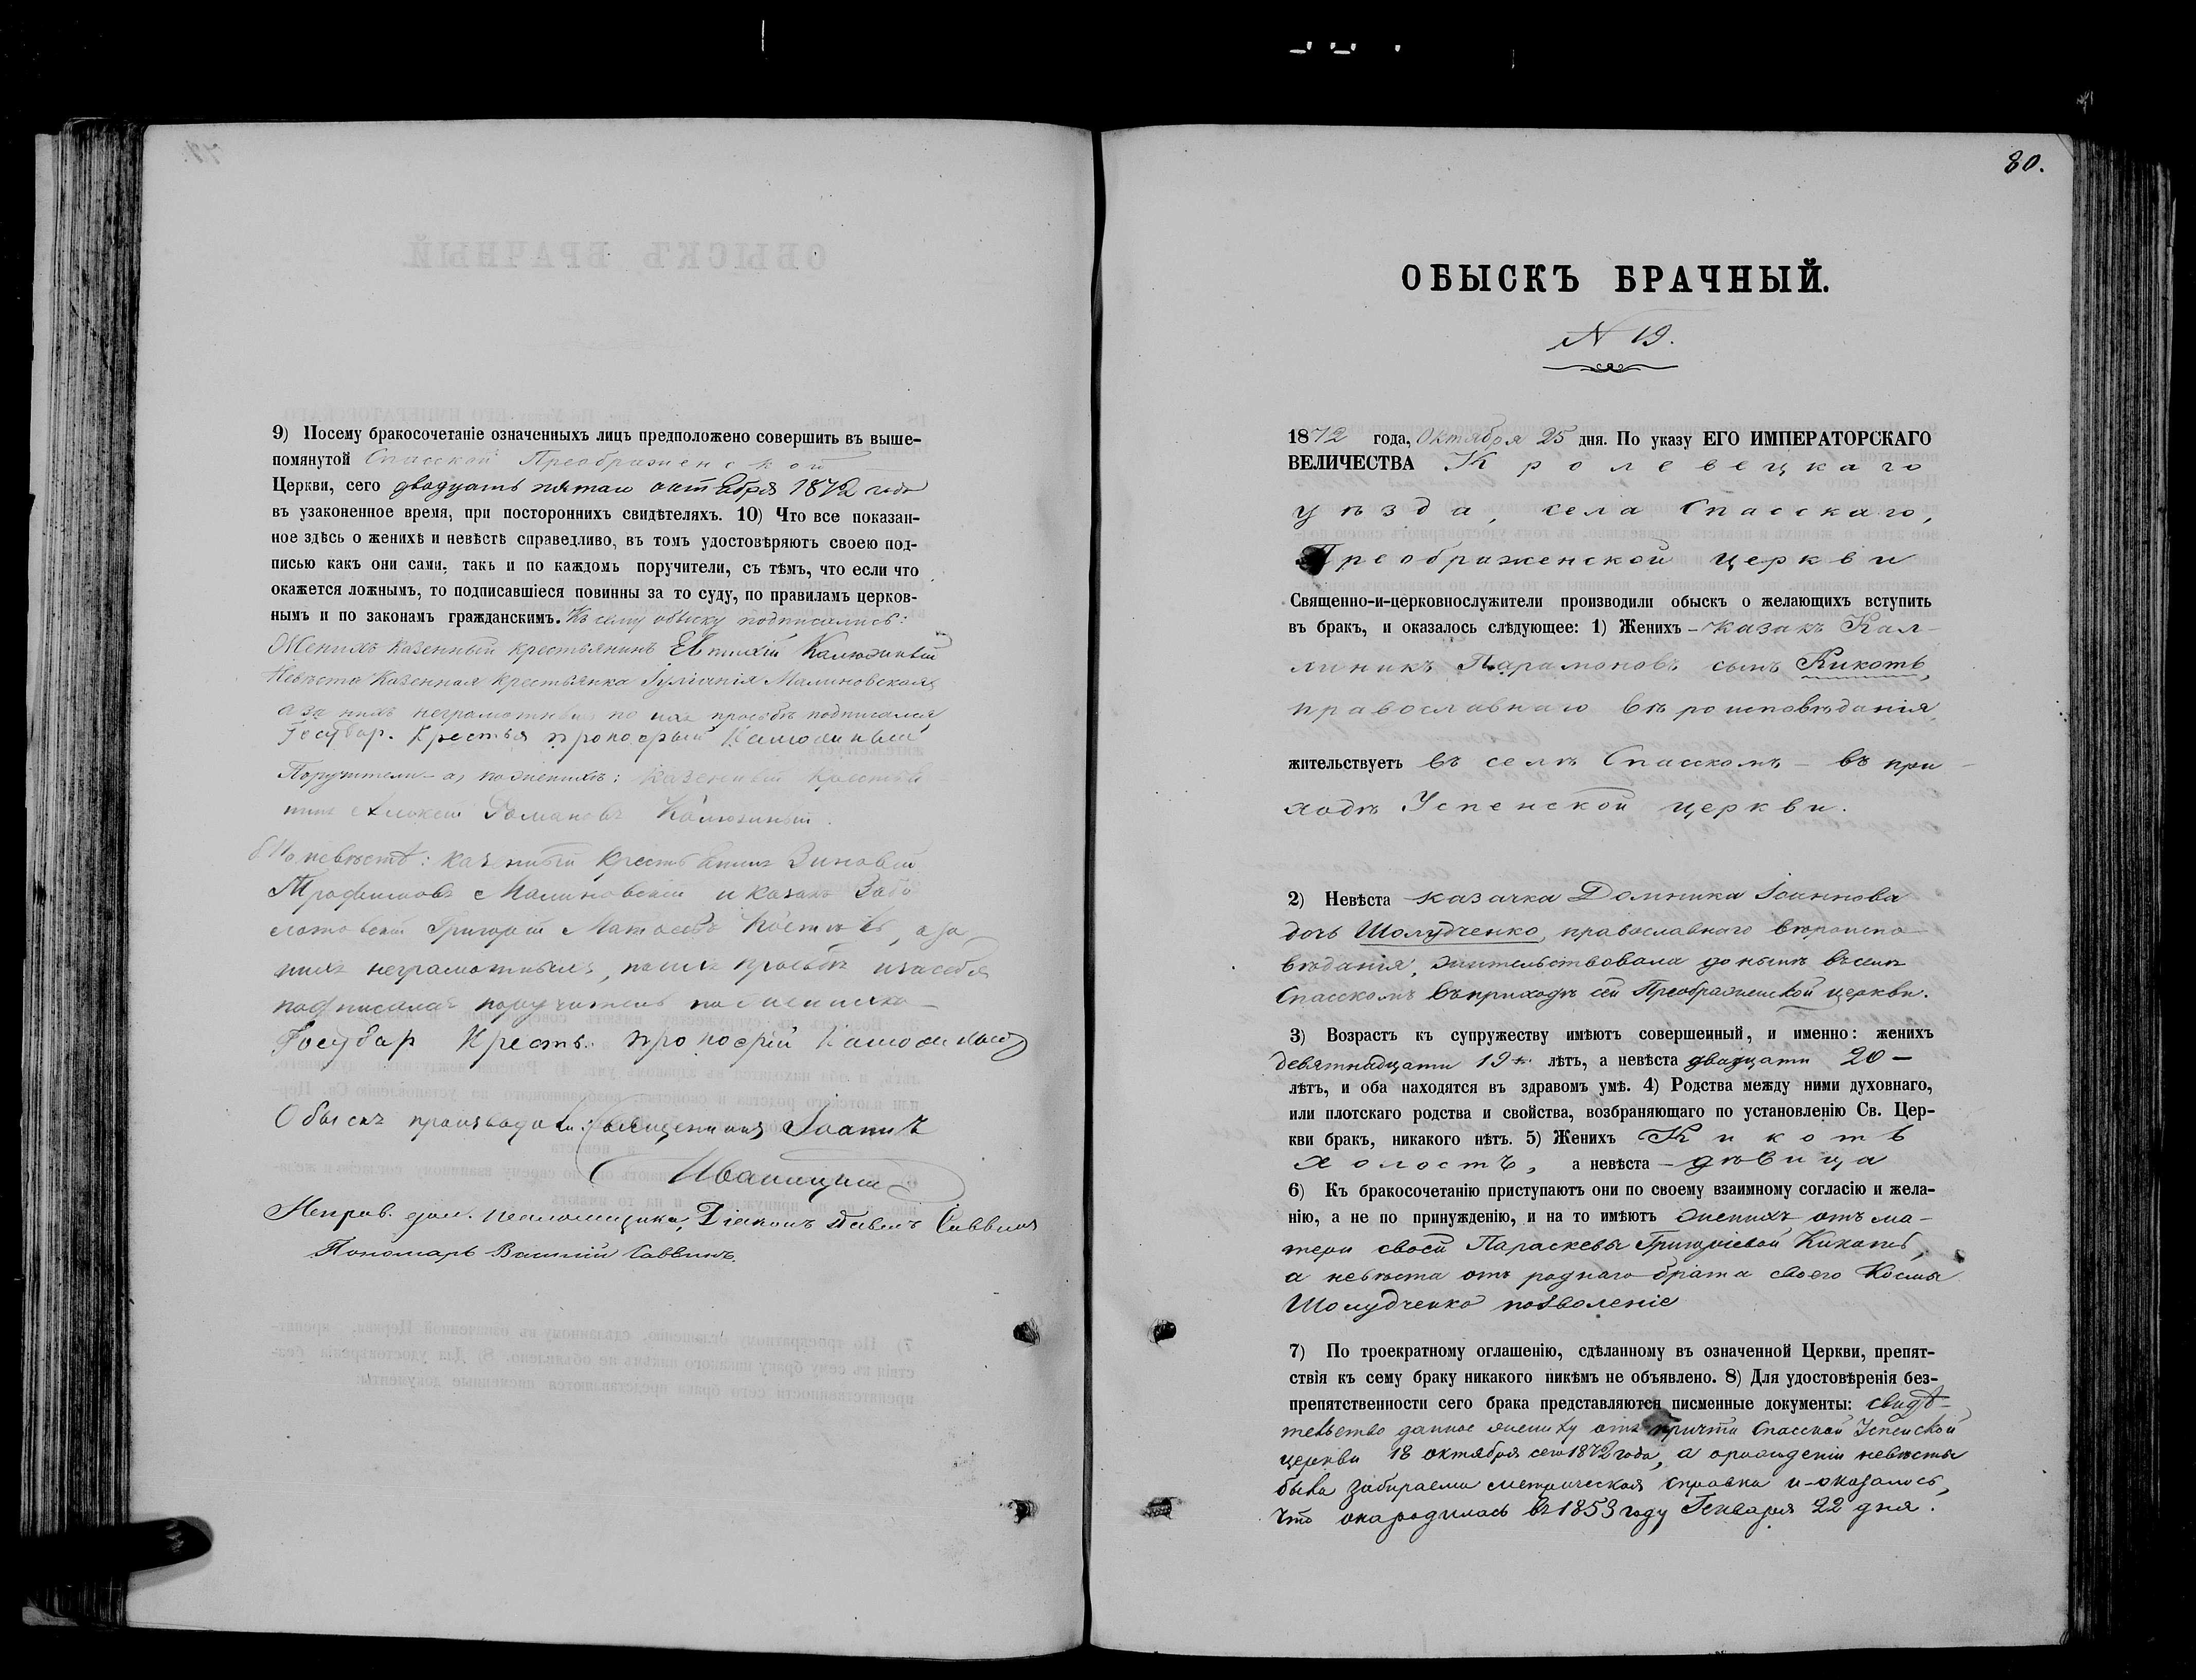 9) Посему бракосочетаніе означенныхъ лицъ предположено совершить въ выше-
помянутой Спасской Преображенской
Церкви, сего двадцать пятаго октября 1872 года
въ узаконенное время, при постороннихъ свидѣтеляхъ. 10) Что все показан-
ное здѣсь о женихѣ и невѣстѣ справедливо, въ томъ удостовѣряютъ своею под-
писью какъ они сами, такъ и по каждомъ поручители, съ тѣмъ, что если что
окажется ложнымъ, то подписавшіеся повинны за то суду, по правиламъ церков-
нымъ и по законамъ гражданскимъ. Къ сему обыску подписались:
Женихъ казенный крестьянинъ Евтихій Калюжный
Невѣста казенная крестьянка Іуліанія Малиновская,
а за нихъ неграмотныхъ по ихъ просьбѣ подписался
Государ. Крестья Прокофий
Поручители – а, по женихѣ: казенный крестья-
нинъ Алексій Романовъ Калюжный.
б По невѣстѣ: казенный крестьянинъ Зиновій
Трофимовъ Малиновскій и казакъ
Григорій , а за
нихъ неграмотныхъ, по ихъ просьбѣ и за себя
подписался поручитель по женихѣ
Государ Кресть. Прокофій
Обыскъ производили: Священникъ Іоаннъ
Иваницкій
Исправ. дол. псаломщика, Діаконъ Павелъ Саввинъ
Пономарь Василій Саввинъ.
80.
ОБЫСКЪ БРАЧНЫЙ.
N 19.
1872 года, Октября 25 дня. По указу ЕГО ИМПЕРАТОРСКАГО
ВЕЛИЧЕСТВА Кролевецкаго
уѣзда, села Спасскаго,
Преображенской церкви
Священно-и-церковнослужители производили обыскъ о желающихъ вступить
въ бракъ, и оказалось слѣдующее: 1) Женихъ – казакъ Кал-
линикъ Парамоновъ сынъ Кикоть,
православнаго вѣроисповѣданія,
жительствуетъ въ селѣ Спасскомъ – въ при-
ходѣ Успенской церкви.
2) Невѣста казачка Домника Іоаннова
дочь Шолудченко, православнаго вѣроиспо-
вѣданія, жительствовала донынѣ въ селѣ
Спасскомъ въ приходѣ сей Преображенской церкви.
3) Возрастъ къ супружеству имѣютъ совершенный, и именно: женихъ
девятнадцати 19 лѣтъ, а невѣста двадцати 20 –
лѣтъ, и оба находятся въ здравомъ умѣ. 4) Родства между ними духовнаго,
или плотскаго родства и свойства, возбраняющаго по установленію Св. Цер-
кви бракъ, никакого нѣтъ. 5) Женихъ Кикоть
холостъ, а невѣста – дѣвица
6) Къ бракосочетанію приступаютъ они по своему взаимному согласію и жела-
нію, а не по принужденію, и на то имѣютъ женихъ отъ ма-
тери своей Параскевы Григоріевой Кикоть,
а невѣста отъ роднаго брата своего Космы
Шолудченко позволеніе
7) По троекратному оглашенію, сдѣланному въ означенной Церкви, препят-
ствія къ сему браку никакого никѣмъ не объявлено. 8) Для удостовѣренія без-
препятственности сего брака представляются писменные документы: свидѣ-
тельство данное жениху отъ причта Спасской Успенской
церкви 18 октября сего 1872 года, а о рожденіи невѣсты
была забираема метрическая справка и оказалось,
что она родилась въ 1853 году Генваря 22 дня.